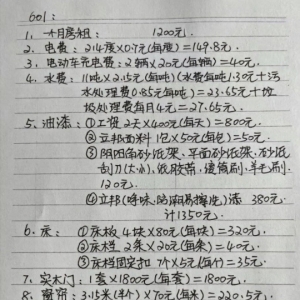 601:
1、一个月房租: 1200元.
2、电费: 214度×0.7元(每度)=149.8元.
3、电动车充电费:2辆×20元(每辆)=40元.
4、水费:11吨×2.15元(每吨)(水费每吨1.30元+污
水处理费0.85元每吨)=23.65元+垃
圾处理费每月4元=27.65元.
5、油漆:①工资2天×400元(每天)=800元.
②立邦面料1包×50元(每包)=50元.
③阴阳角砂纸架、平面砂纸架、砂纸
刮刀(大小)、纸胶带、缝筒刷、羊毛刷
120元.
④立邦(哆咪、防潮易擦洗)漆 380元.
计1350元.
6、床:①床板 4块×80元(每块)=320元.
②床档 2条×20元(每条)=40元.
③床档固定扣 7个×5元(每个)=35元.
7、实木门:1套×1800元(每套)=1800元.
8、窗帘:3.15米(半个)×70元(每米)=220.5元.